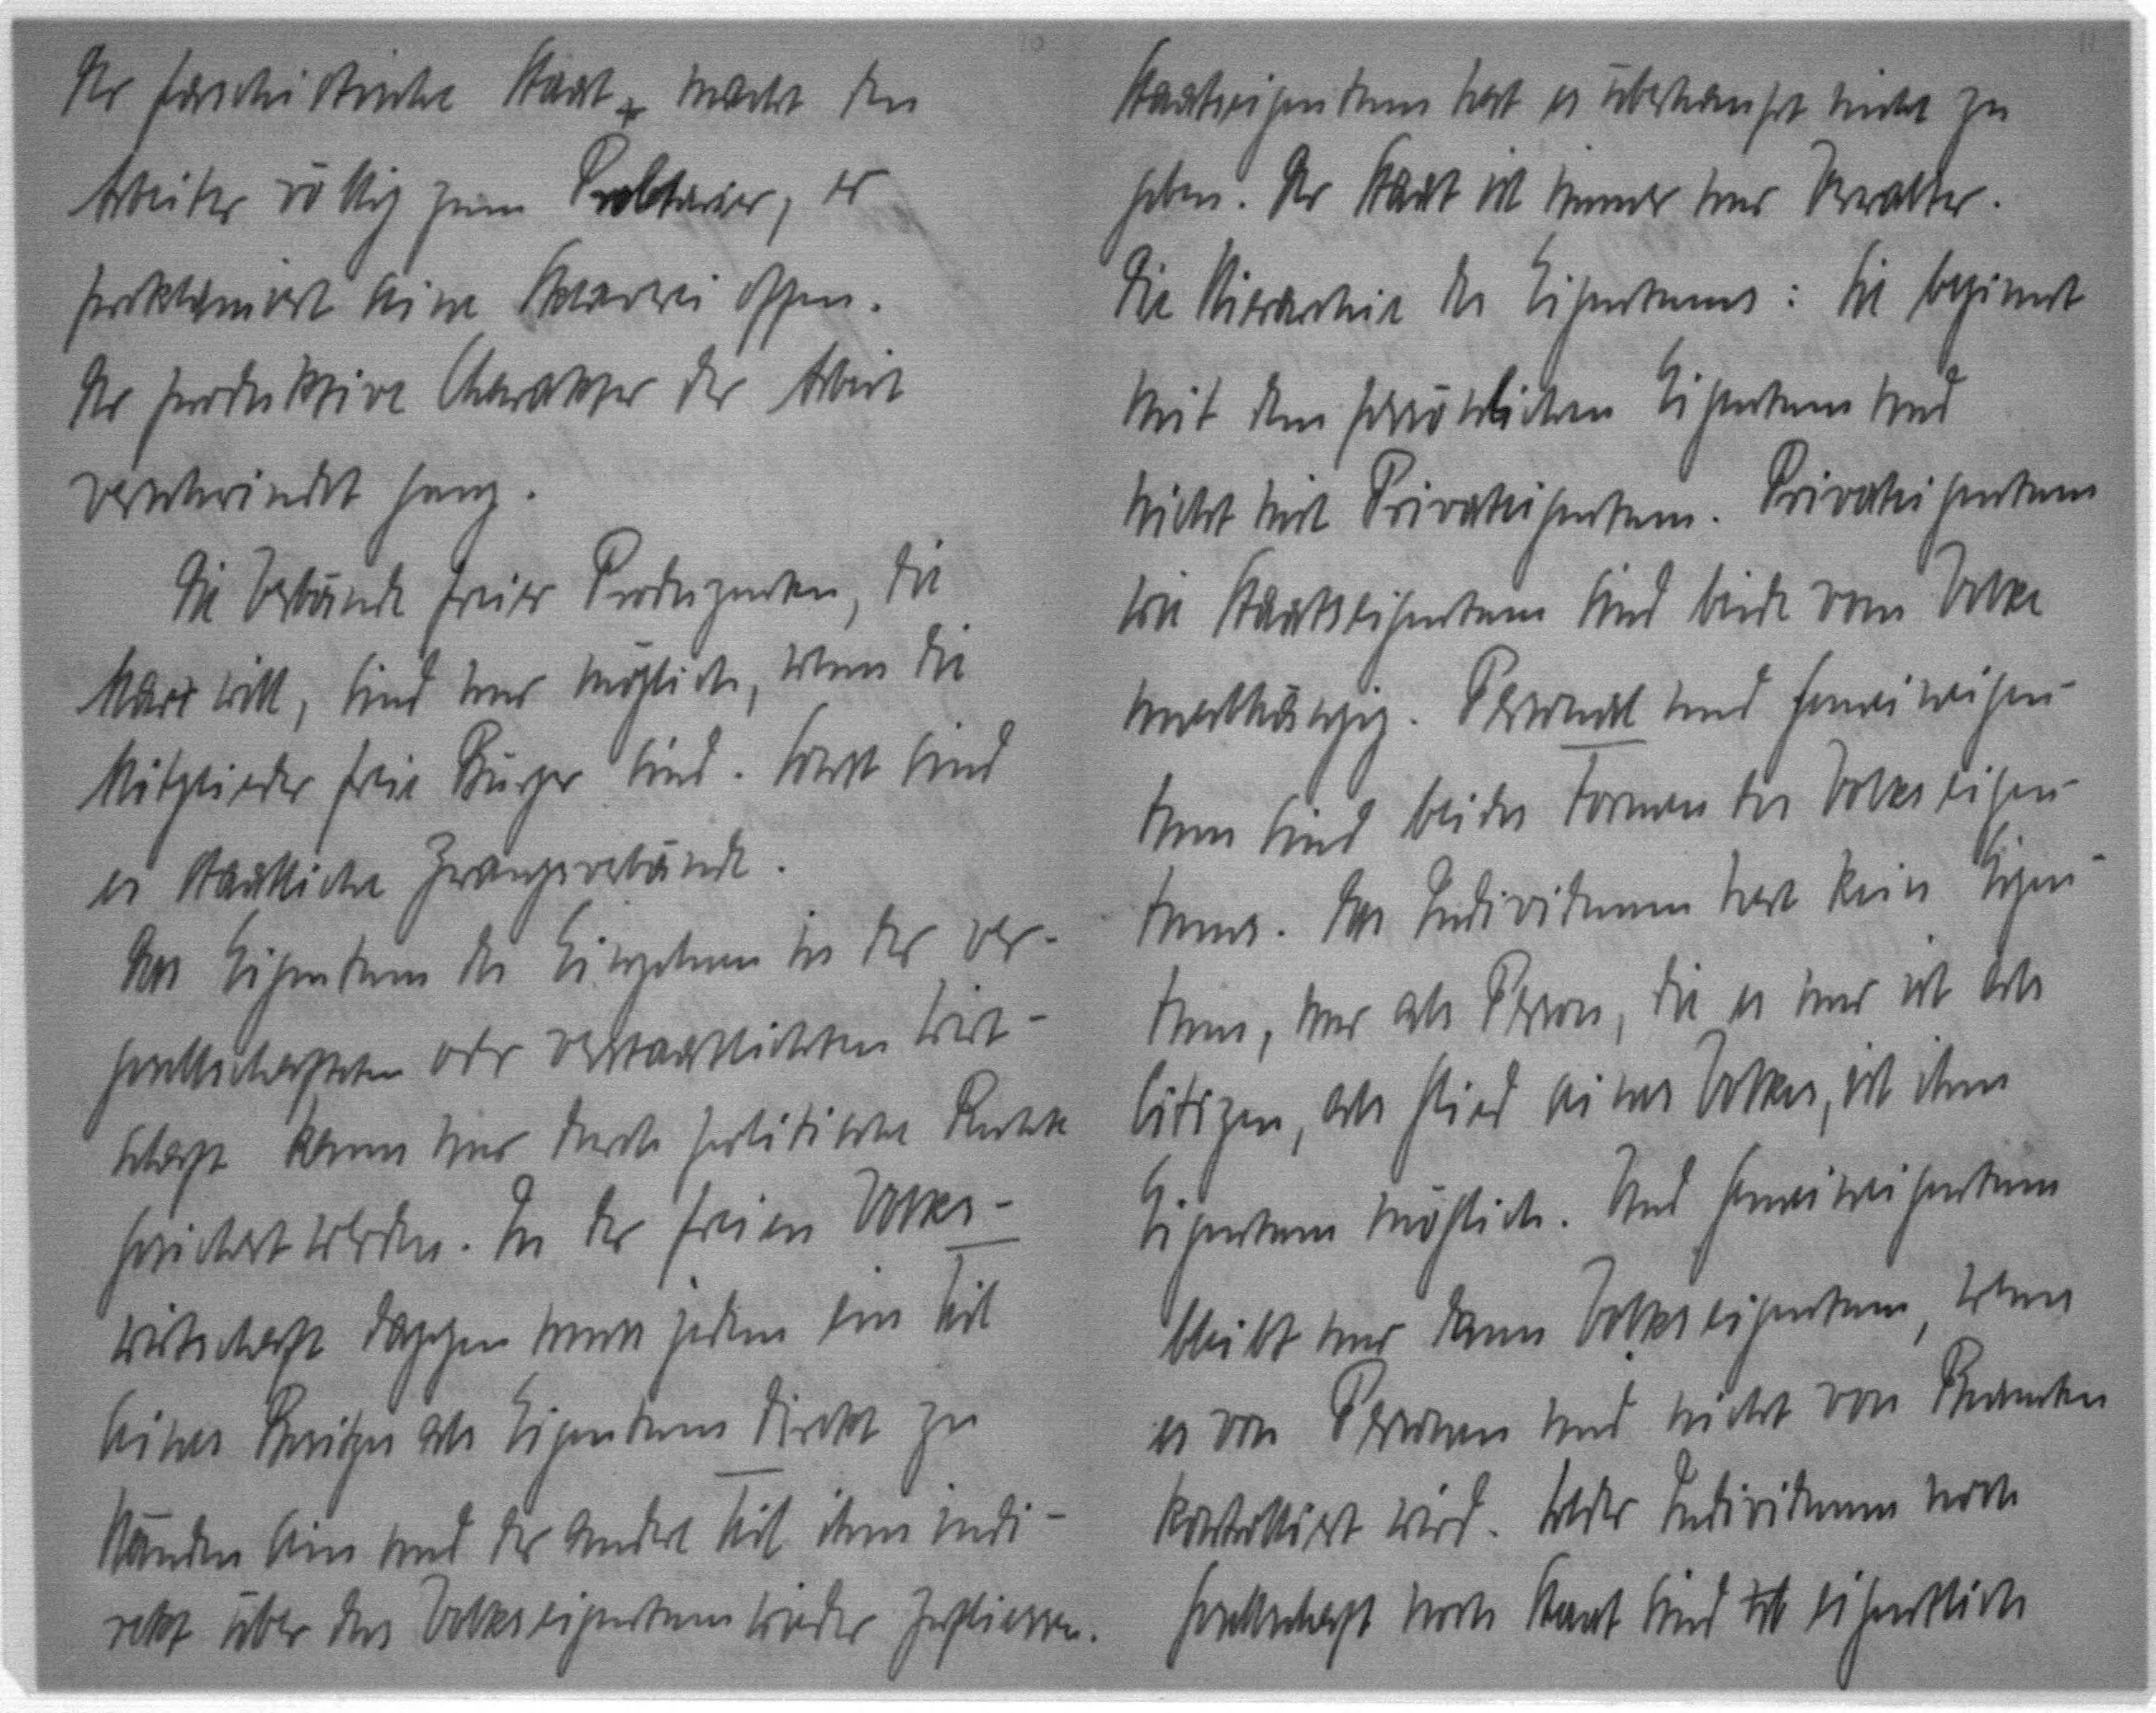 Der faschistische Staat macht den
Arbeiter völlig zum Proletarier, er
proklamiert seine Sklaverei offen.
Der produktive Charakter der Arbeit
verschwindet ganz.
Die Verbände freier Produzenten, die
Marx will, sind nur möglich, wenn die
Mitglieder freie Bürger sind. Sonst sind
es staatliche Zwangsverbände.
Das Eigentum des Einzelnen in der ver-
gesellschafteten oder verstaatlichten Wirt-
schaft kann nur durch politische Rechte
gesichert werden. In der freien Volks-
wirtschaft dagegen muss jedem ein Teil
seines Besitzes als Eigentum direkt zu
Händen sein und der andere Teil ihm indi-
rekt über das Volkseigentum wieder zufliessen.
Staatseigentum hat es überhaupt nicht zu
geben. Der Staat ist immer nur Verwalter.
Die Hierarchie des Eigentums: Sie beginnt
mit dem persönlichen Eigentum und
nicht mit Privateigentum. Privateigentum
wie Staatseigentum sind beide vom Volke
unabhängig. Personal und Gemeineigen-
tum sind beides Formen des Volkseigen-
tums. Das Individuum hat kein Eigen-
tum, nur als Person, die es nur ist als
Citizen, als Glied eines Volkes, ist ihm
Eigentum möglich. Und Gemeineigentum
bleibt nur dann Volkseigentum, wenn
es von Personen und nicht von Beamten
kontrolliert wird. Weder Individuum noch
Gesellschaft noch Staat sind eigentlich